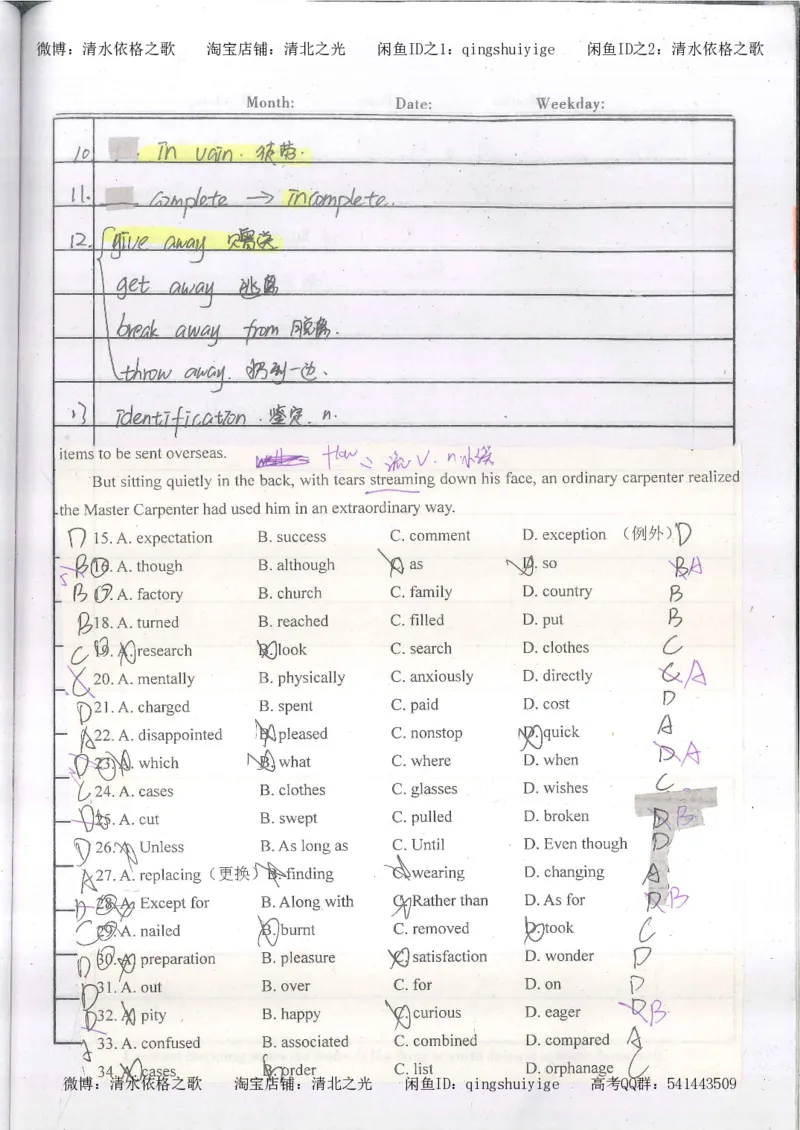 微博：清水依格之歌 淘宝店铺：清北之光 闲鱼ID之1：qingshuiyige 闲鱼ID之2：清水依格之歌
Month: Date: Weekday:
10 in vain. 徒劳.
11. complete → incomplete.
12. give away 赠送
get away 逃离
break away from 脱离.
throw away. 扔到一边.
13 identification. 鉴定. n.
items to be sent overseas. flow 流 V. n
But sitting quietly in the back, with tears streaming down his face, an ordinary carpenter realized
the Master Carpenter had used him in an extraordinary way.
D 15. A. expectation B. success C. comment D. exception （例外） D
B 16. A. though B. although C. as D. so B A
B 17. A. factory B. church C. family D. country B
B 18. A. turned B. reached C. filled D. put B
C 19. A. research B. look C. search D. clothes C
20. A. mentally B. physically C. anxiously D. directly C A
D 21. A. charged B. spent C. paid D. cost D
A 22. A. disappointed B. pleased C. nonstop D. quick A
D 23. A. which B. what C. where D. when D A
C 24. A. cases B. clothes C. glasses D. wishes C
D 25. A. cut B. swept C. pulled D. broken D B
D 26. A. Unless B. As long as C. Until D. Even though D
A 27. A. replacing（更换） B. finding C. wearing D. changing A
D 28. A. Except for B. Along with C. Rather than D. As for D B
C 29. A. nailed B. burnt C. removed D. took C
D 30. A. preparation B. pleasure C. satisfaction D. wonder D
D 31. A. out B. over C. for D. on D
D 32. A. pity B. happy C. curious D. eager D B
A 33. A. confused B. associated C. combined D. compared A
34. A. cases B. order C. list D. orphanage C
微博：清水依格之歌 淘宝店铺：清北之光 闲鱼ID：qingshuiyige 高考QQ群：541443509